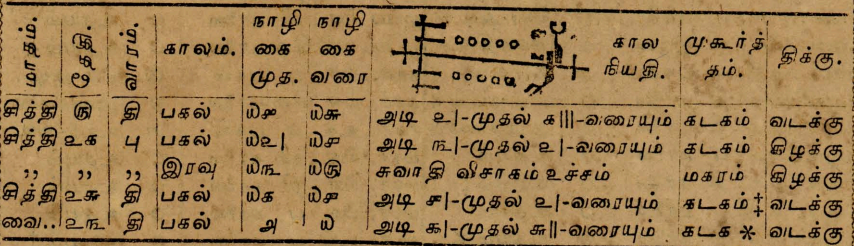 மாதம். தேதி. வாரம். காலம். நாழிகை முத. நாழிகை வரை கால நியதி. முகூர்த்தம். திக்கு.
சித்தி ௫ தி பகல் ௰௪ ௰௬ அடி ௨|-முதல் ௧|||-வரையும் கடகம் வடக்கு
சித்தி ௨௧ பு பகல் ௰௨| ௰௪ அடி ௩|-முதல் ௨|-வரையும் கடகம் கிழக்கு
,, ,, ,, இரவு ௰௩ ௰௫ சுவாதி விசாகம் உச்சம் மகரம் கிழக்கு
சித்தி ௨௬ தி பகல் ௰௧ ௰௪ அடி ௪|-முதல் ௨|-வரையும் கடகம் ‡ வடக்கு
வை.. ௨௩ தி பகல் ௮ ௰ அடி ௯|-முதல் ௬||-வரையும் கடக * வடக்கு